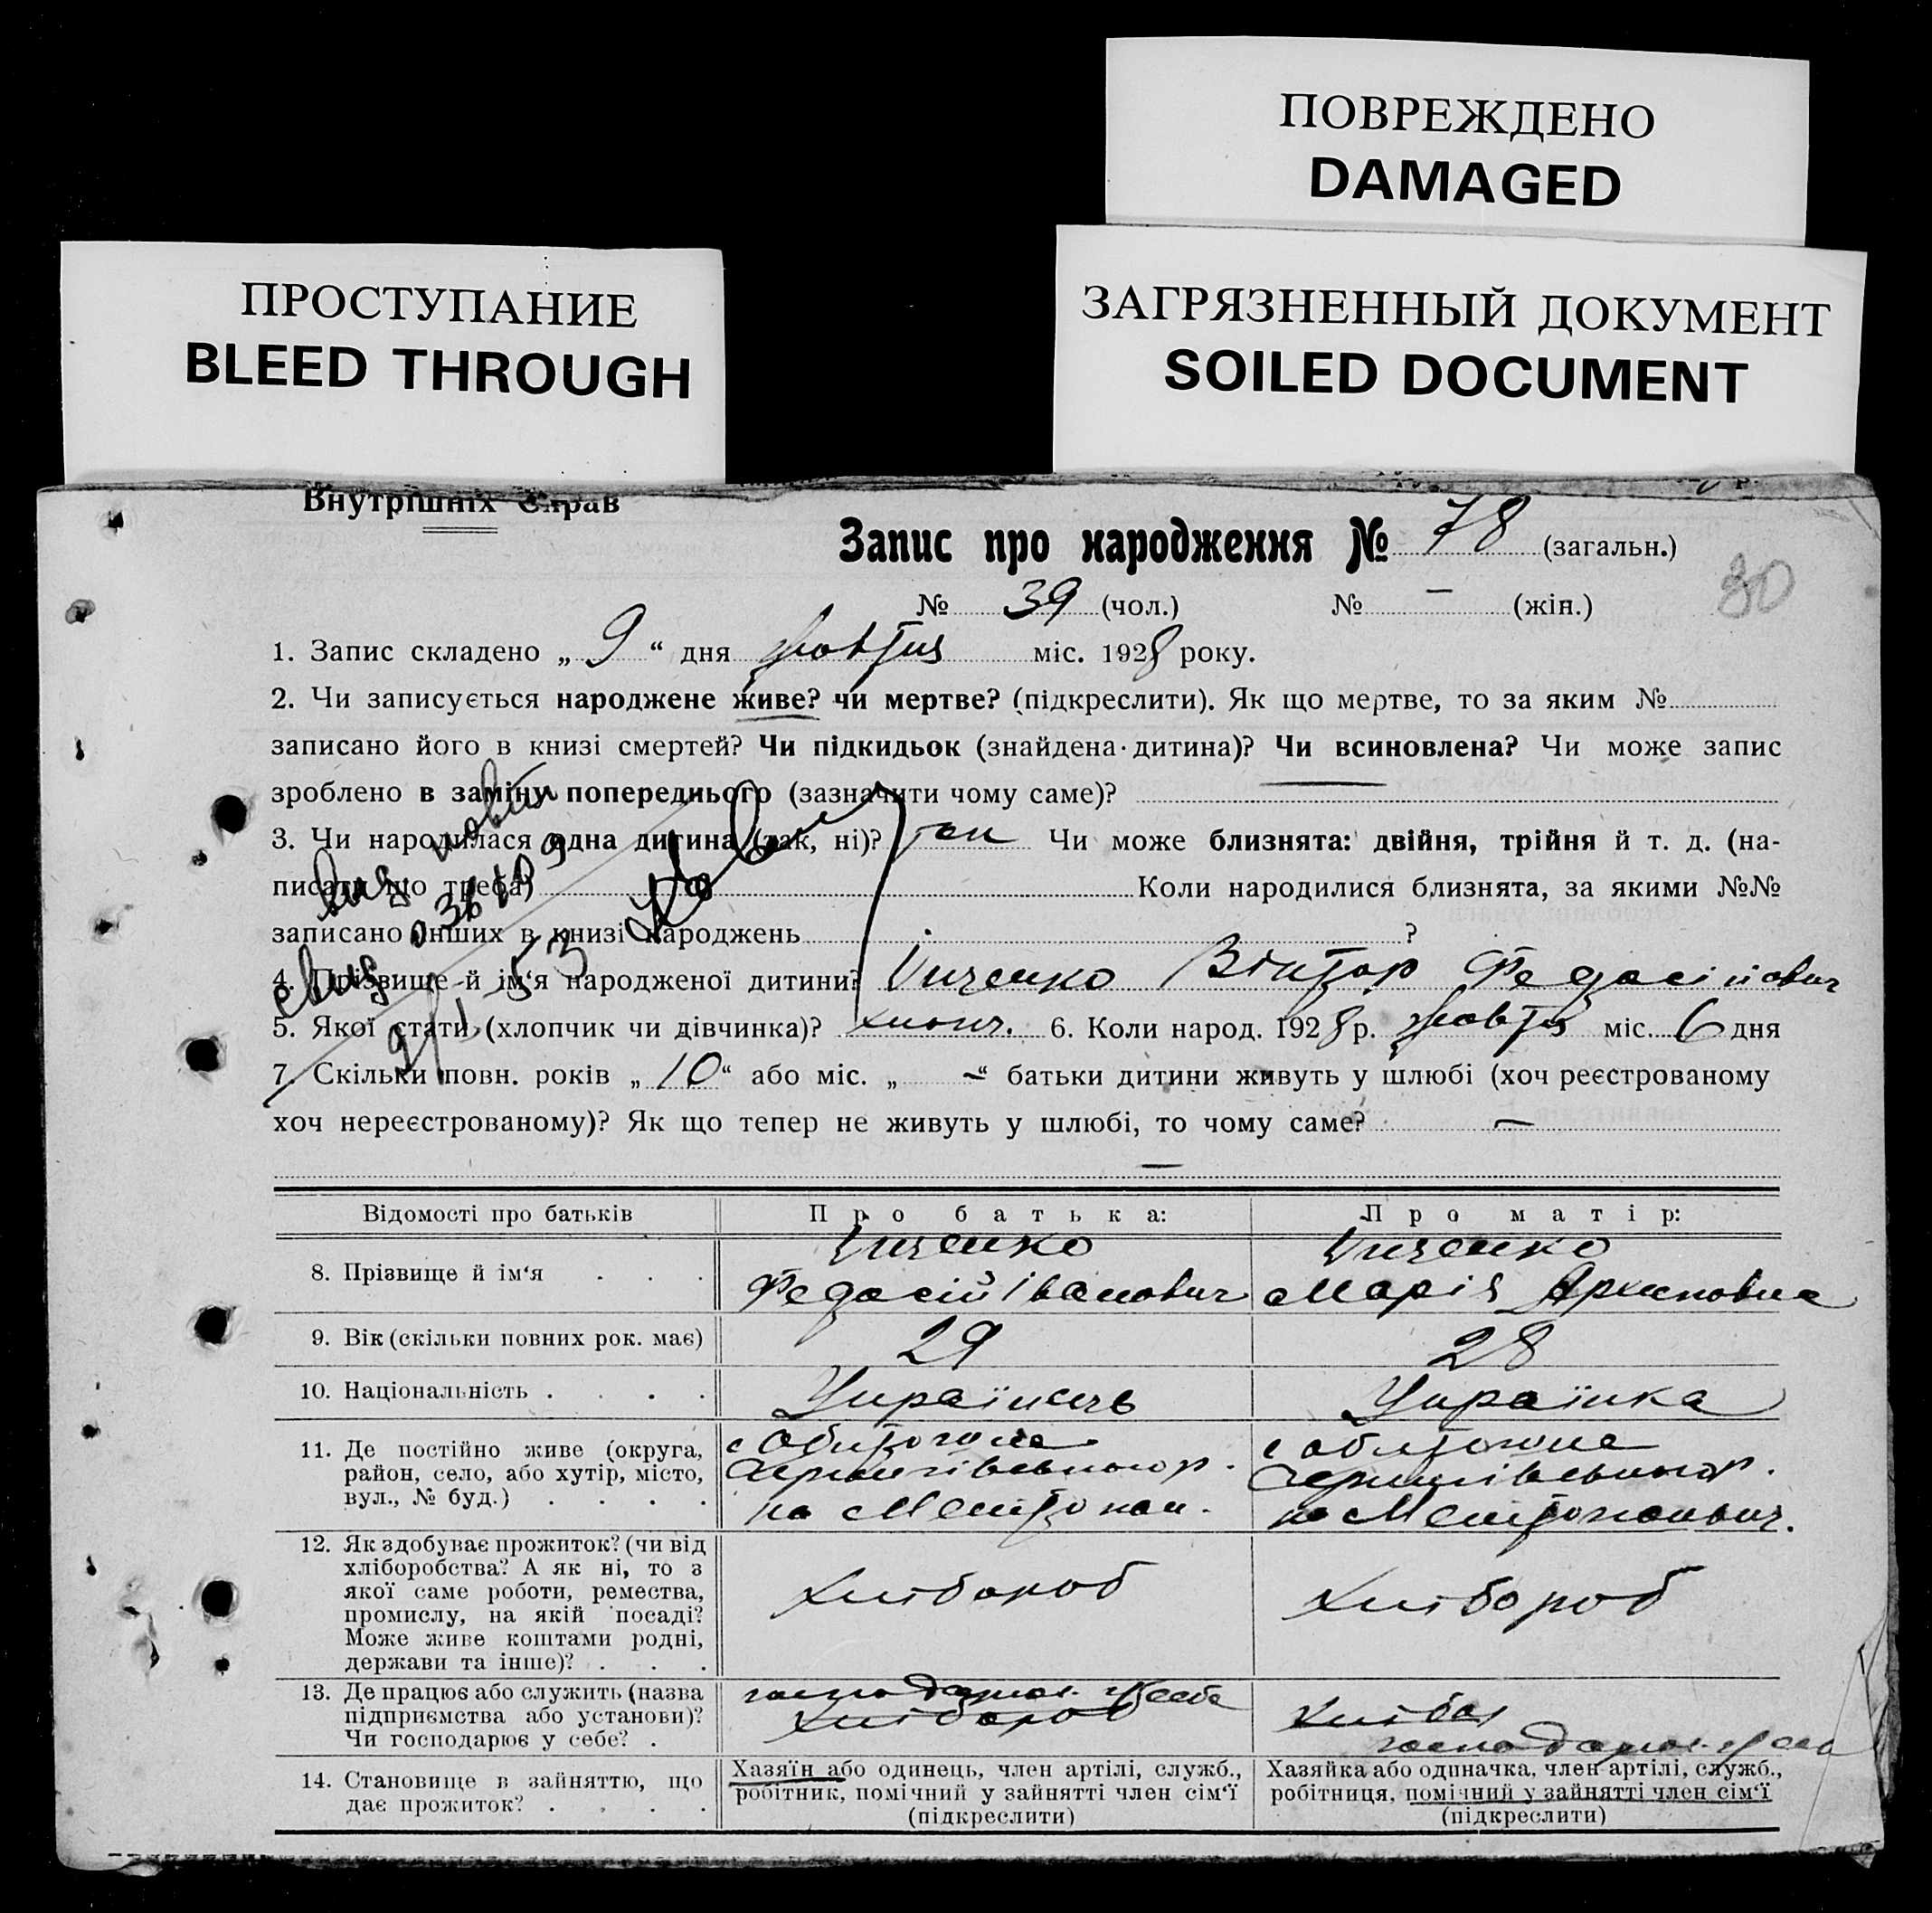 ПОВРЕЖДЕНО
DAMAGED
ПРОСТУПАНИЕ
BLEED THROUGH
ЗАГРЯЗНЕННЫЙ ДОКУМЕНТ
SOILED DOCUMENT
Внутрішніх Справ
Запис про народження № 78 (загальн.)
№ 39 (чол.) № — (жін.)
30
1. Запис складено „ 9 “ дня жовтня міс. 1928 року.
2. Чи записується народжене живе? чи мертве? (підкреслити). Як що мертве, то за яким №
записано його в книзі смертей? Чи підкидьок (знайдена дитина)? Чи всиновлена? Чи може запис
зроблено в заміну попереднього (зазначити чому саме)? —
3. Чи народилася одна дитина (так, ні)? так Чи може близнята: двійня, трійня й т. д. (на-
писати що треба) Коли народилися близнята, за якими №№
записано інших в книзі народжень ?
4. Прізвище й ім‘я народженої дитини? Віктор Федосійович
5. Якої статі (хлопчик чи дівчинка)? хлопч. 6. Коли народ. 1928 р. жовтня міс. 6 дня
7. Скільки повн. років „ 10 “ або міс. „ — “ батьки дитини живуть у шлюбі (хоч реєстрованому
хоч нереєстрованому)? Як що тепер не живуть у шлюбі, то чому саме? —
—
Відомості про батьків Про батька: Про матір:
8. Прізвище й ім‘я . . .
Федосій Іванович Марія
9. Вік (скільки повних рок. має) 29 28
10. Національність . . . . Українець Українка
11. Де постійно живе (округа,
район, село, або хутір, місто,
вул., № буд.) . . . .
12. Як здобуває прожиток? (чи від
хліборобства? А як ні, то з
якої саме роботи, ремества,
промислу, на якій посаді?
Може живе коштами родні,
держави та інше)? . . .
Хлібороб Хлібороб
13. Де працює або служить (назва
підприємства або установи)?
Чи господарює у себе? .
господарює у себе
хлібороб
господарює у себе
14. Становище в зайняттю, що
дає прожиток? . . . .
Хазяїн або одинець, член артілі, служб.,
робітник, помічний у зайнятті член сім‘ї
(підкреслити)
Хазяйка або одиначка, член артілі, служб.,
робітниця, помічний у зайнятті член сім‘ї
(підкреслити)